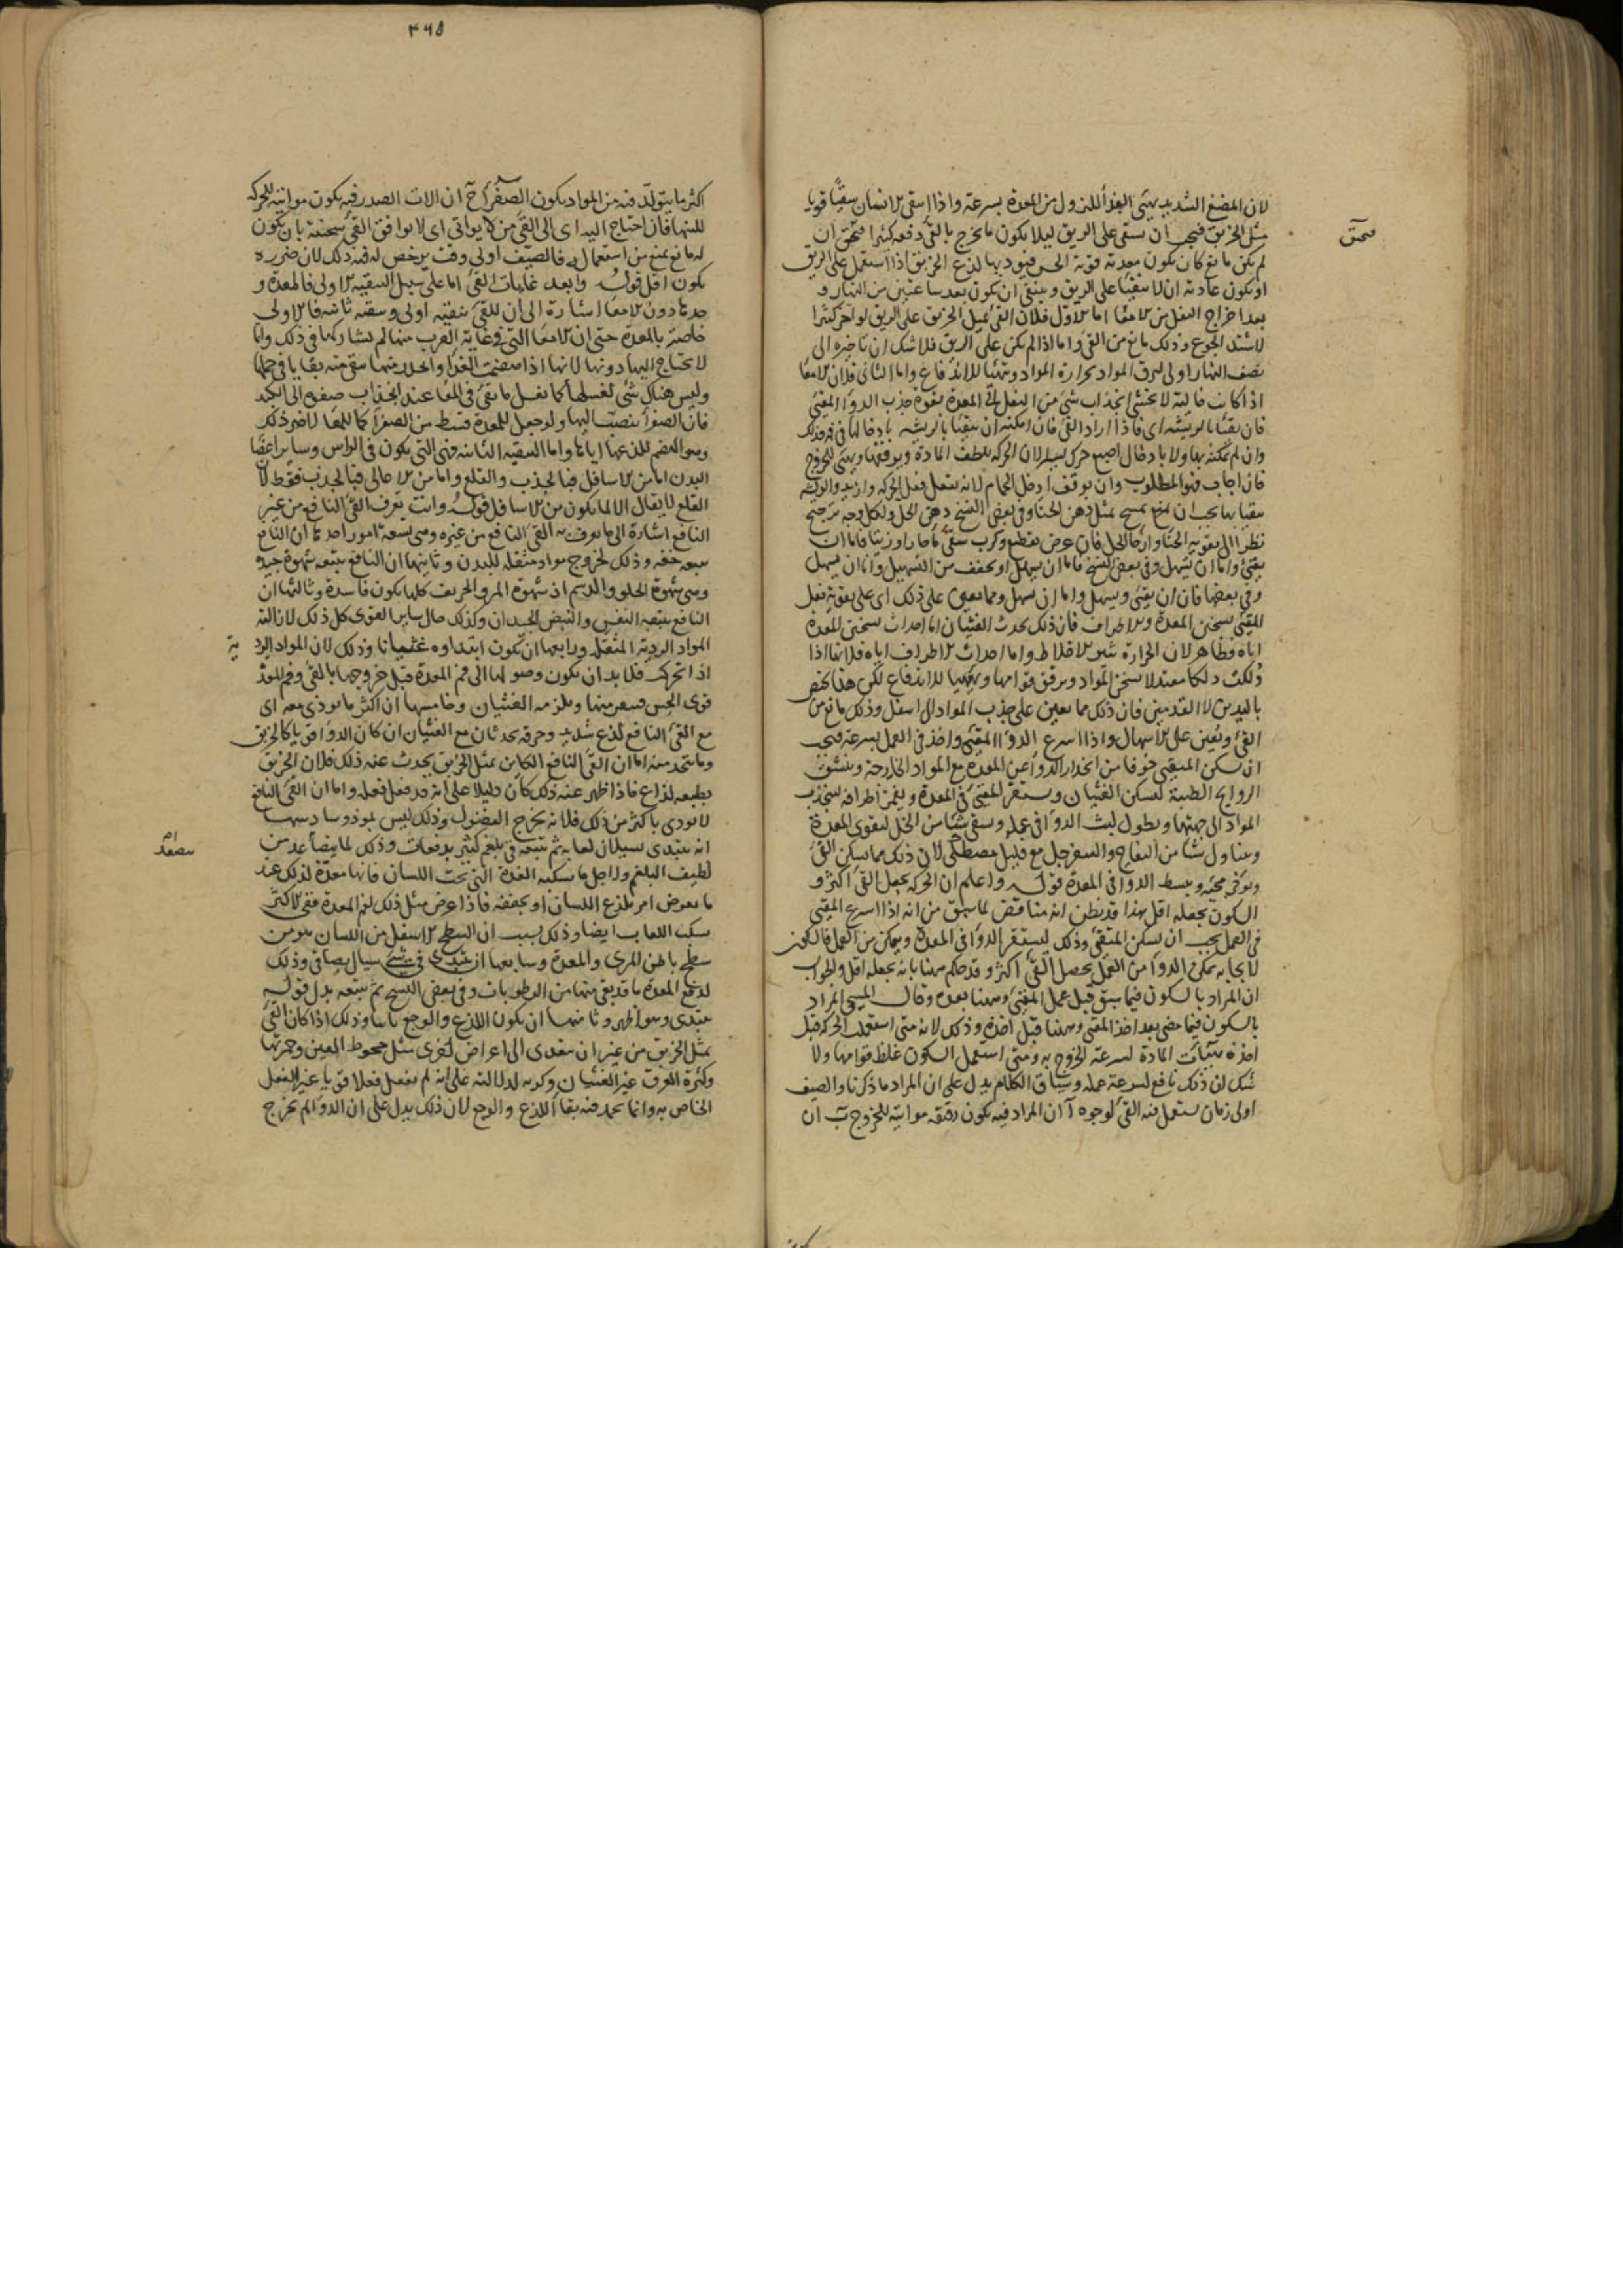 لان المضغ الشديد يهيئ الغذأ للنزول من المعدة بسرعة واذا سقى الانسان مقيئًا قويا
مثل الخربق فيجب ان يسقى على الريق ليلا يكون ما يخرج بالقئ دفعه كثيرا فيخنق ان
لم يكن مانع كان يكون معدته قوية الحس فيوذيها لذع الخربق اذا استعمل على الريق
او يكون عادته ان لا يتقيأ على الريق وينبغي ان يكون بعد ساعتين من النهار و
بعد اخراج الثفل من الامعا اما الاول فلان القئ بمثل الخربق على الريق لو اخر كثيرا
لاشتد الجوع وذلك مانع من القئ واما اذا لم يكن على الريق فلا شك ان تاخيره الى
نصف النهار اولى لترق المواد بحرارة المواد وتتهيأ للاندفاع واما الثاني فلان الامعا
اذا كانت خالية لا يخشى انجذاب شئ من الثفل الى المعدة بقوة جذب الدوا المقيئ
فان تقيأ بالريشه اى فاذا اراد القئ فان امكنه ان يتقيأ بالريشه بادخالها في فمه فذلك
وان لم يمكنه بها ولا بادخال اصبع حرك يسيرا لان الحركه تلطف المادة ويرققها ويهيئ للخروج
فان اجاب فهو المطلوب وان توقف ادخل الحمام لانه يفعل فعل الحركه وازيد والريشه
يتقيا بها يجب ان تمسح بمثل دهن الحنا وفي بعض النسخ دهن الخل ولكل وجه ترجيح
نظرا الى تقوية الحنا وارخأ الخل فان عرض تقطيع وكرب سقى مأ حارا او زيتا فاما ان
يقيئ واما ان يسهل وفي بعض النسخ فاما ان يسهل او يخفف من التسهيل واما ان يسهل
وفي بعضها فان ان يقيئ ويسهل واما ان يسهل ومما يعين على ذلك اى على تقوية فعل
المقيئ تسخين المعدة والاطراف فان ذلك يحدث الغثيان اما احداث تسخين المعدة
اياه فظاهر لان الحرارة تثير الاخلاط واما احداث الاطراف اياه فلانها اذا
دلكت دلكا معتدلا تسخن المواد ويرقق قوامها وتهيئها للاندفاع لكن هذا يختص
باليدين لا القدمين فان ذلك مما يعين على جذب المواد الى اسفل وذلك مانع من
القئ ويعين على الاسهال واذا اسرع الدوا المقيئ واخذ في العمل بسرعة فيجب
ان يسكن المتقيئ خوفا من انحدار الدوا عن المعدة مع المواد الخارجة ويتنشق
الروايح الطيبة لتسكن الغثيان ويستقر المقيئ في المعدة ويغمز اطرافه لتنجذب
المواد الى جهتها ويطول لبث الدوا في عمله ويسقى شيئا من الخل لتقوى المعدة
ويتناول شيئا من التفاح والسفرجل مع قليل مصطكى لان ذلك مما يسكن القئ
ويوخر مجيئه ويبسط الدوا في المعدة قوله واعلم ان الحركه يجعل القئ اكثر و
السكون يجعله اقل هذا قد يظن انه مناقض لما سبق من انه اذا اسرع المقيئ
في العمل يجب ان يسكن المتقيئ وذلك ليستقر الدوا في المعدة ويمكن من العمل فالسكون
لايجابه تمكن الدوأ من العمل يحصل القئ اكثر وقد حكم ههنا بانه يجعله اقل والجواب
ان المراد بالسكون فيما سبق قبل عمل المقيئ وههنا بعده وقال المسيحى المراد
بالسكون فيما مضى بعد اخذ المقيئ وههنا قبل اخذه وذلك لانه متى استعملت الحركه قبل
اخذه تهيأت المادة لسرعة الخروج به ومتى استعمل السكون غلظ قوامها ولا
شك ان ذلك نافع لسرعة عمله وسياق الكلام يدل على ان المراد ما ذكرنا والصيف
اولى زمان يستعمل فيه القئ لوجوه آ ان المواد فيه يكون رقيقه مواتيه للخروج ب ان
٤٦٥
اكثر ما يتولد فيه من المواد يكون الصفرأ ج ان الات الصدر فيه يكون مواتيه للحركه
للينها فان احتاج اليه اى الى القئ من لا يواتى اى لا يوافق القئ سحنته بان يكون
له مانع يمنع من استعماله فالصيف اولى وقت يرخص له فيه ذلك لان ضرره
يكون اقل قوله وابعد غايات القئ اما على سبيل التنقية الاولى فالمعدة و
حدها دون الامعا اشارة الى ان للقئ تنقيه اولى وتنقيه ثانيه فالاولى
خاصة بالمعدة حتى ان الامعا التى في غاية القرب منها لم يشاركها في ذلك وانما
لا يحتاج اليها دونها لانها اذا هضمت الغذا وانحدر منها بقى منه بقايا في خملها
وليس هناك شئ لغسلها كما يغسل ما بقى في المعا عند انجذاب صفوه الى الكبد
فان الصفرا ينصب اليها ولو جعل للمعدة قسط من الصفرا كما للمعا لاضر ذلك
وهو الهضم للذعها اياها واما التنقيه الثانيه فهى التى يكون في الراس وساير اعضا
البدن اما من الاسافل فبالجذب والقلع واما من الاعالى فبالجذب فقط لان
القلع لا يقال الا لما يكون من الاسافل قوله وانت تعرف القئ النافع من غير
النافع اشارة الى ما يعرف به القئ النافع من غيره وهى تسعة امور احدها ان النافع
يتبعه خفه وذلك لخروج مواد مثقله للبدن وثانيها ان النافع يتبعه شهوة جيده
وهى شهوة الحلو والدسم اذ شهوة المر والحريف كلها يكون فاسدة وثالثها ان
النافع يتبعه النفس والنبض الجيدان وكذلك حال ساير القوى كل ذلك لازالته
المواد الرديه المثقله ورابعها ان يكون ابتداوه غثيانا وذلك لان المواد الرديه
اذا تحرك فلا بد ان يكون وصولها الى فم المعدة قبل خروجها بالقئ وفم المعدة
قوى الحس فينفر منها ويلزمه الغثيان وخامسها ان اكثر ما يوذى معه اى
مع القئ النافع لذع شديد وحرقه يحدثان مع الغثيان ان كان الدوا قويا كالخربق
وما يتخذ منه اما ان القئ النافع الكاين بمثل الخربق يحدث عنه ذلك فلان الخربق
بطبعه لذاع فاذا ظهر عنه ذلك كان دليلا على انه قد فعل فعله واما ان القئ النافع
لا يوذى باكثر من ذلك فلانه يخرج الفضول وذلك ليس بموذ وسادسها
انه يبتدى سيلان لعابه ثم يتبعه قئ بلغم كثير بدفعات وذلك لما يتصاعد من
لطيف البلغم ولاجل ما يسكبه الغدة التى تحت اللسان فانها معدة لذلك عند
ما يعرض امر يلذع اللسان او يجففه فاذا عرض مثل ذلك لفم المعدة ففى الاكثر
يسكب اللعاب ايضا وذلك بسبب ان السطح الاسفل من اللسان هو من
سطح باطن المرى والمعدة وسابعها ان يبتدى قئ شئ سيال بصاقى وذلك
لدفع المعدة ما قد بقى فيها من الرطوبات وفي بعض النسخ ثم يتبعه بدل قوله
يبتدى وهو اظهر وثامنها ان يكون اللذع والوجع ثابتا وذلك اذا كان القئ
بمثل الخربق من غير ان يتعدى الى اعراض اخرى مثل جحوظ العين وحمرتها
وكثرة العرق غير الغثيان وكربه لدلالته على انه لم يفعل فعلا قويا غير الفعل
الخاص به وانما يحمد فيه بقأ اللذع والوجع لان ذلك يدل على ان الدوا لم يخرج